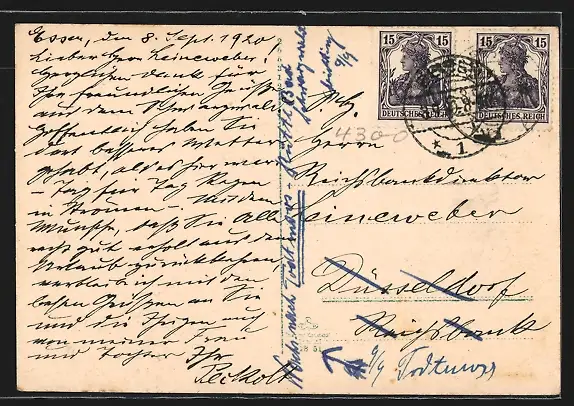 Essen, den 8. Sept. 1920
Lieber Herr Heineweber!
Herzlichen Dank für
Ihre freundlichen Grüsse
aus dem Schwarzwald.
Hoffentlich haben Sie
dort besseres Wetter
gehabt, als es hier war
- Tag für Tag Regen
in Strömen - Mit dem
Wunsche, daß Sie alle
recht gut erholt aus dem
Urlaub zurückkehren,
verbleibe ich mit den
besten Grüssen an Sie
und die Ihrigen auch
von meiner Frau
und Tochter Ihr
Peckolt
15 15
DEUTSCHES REICH
15 15
DEUTSCHES REICH
ESSEN
1
4300
Herrn
Reichsbankdirektor
Heineweber
Düsseldorf
Reichsbank
9/9
9/9